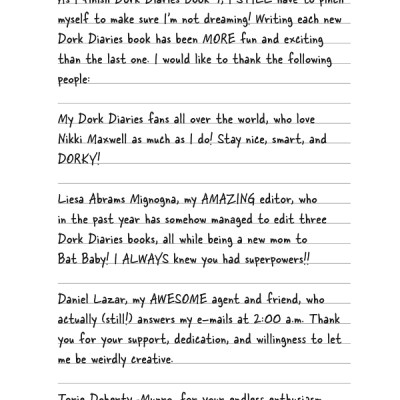 As I finish Dork Diaries Book 7, I STILL have to pinch
myself to make sure I'm not dreaming! Writing each new
Dork Diaries book has been MORE fun and exciting
than the last one. I would like to thank the following
people:
My Dork Diaries fans all over the world, who love
Nikki Maxwell as much as I do! Stay nice, smart, and
DORKY!
Liesa Abrams Mignogna, my AMAZING editor, who
in the past year has somehow managed to edit three
Dork Diaries books, all while being a new mom to
Bat Baby! I ALWAYS knew you had superpowers!!
Daniel Lazar, my AWESOME agent and friend, who
actually (still!) answers my e-mails at 2:00 a.m. Thank
you for your support, dedication, and willingness to let
me be weirdly creative.
Torie Doherty-Munro, for your endless enthusiasm